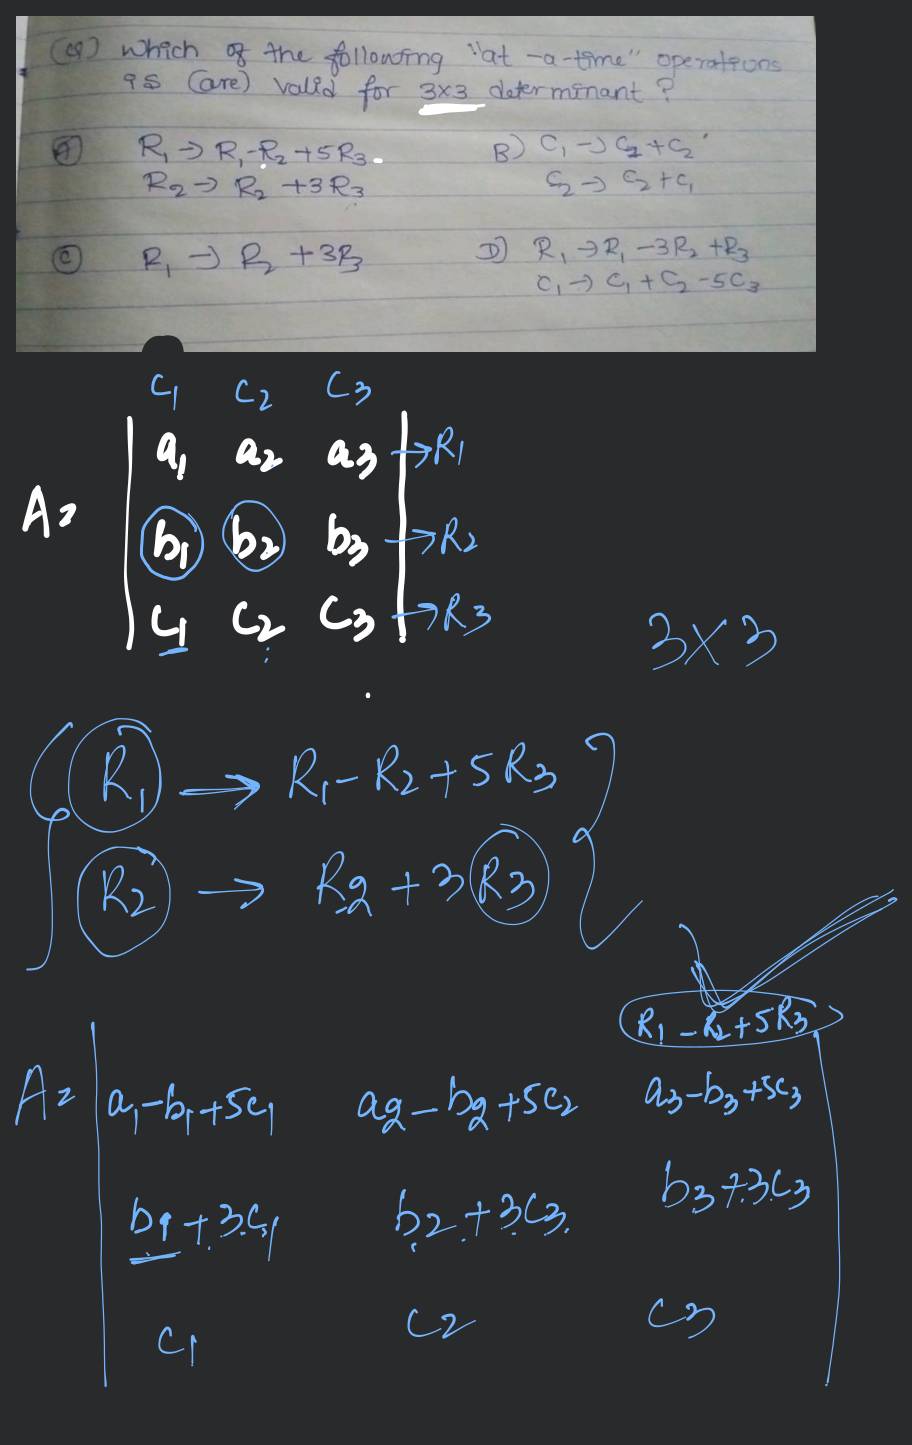 (Q) Which of the following "at-a-time" operations
is (are) valid for 3x3 determinant?
A) R₁ → R₁-R₂+5R₃ B) C₁ → C₂+C₂
R₂ → R₂ +3R₃ C₂ → C₂+C₁
C) R₁ → R₂ +3R₃ D) R₁ → R₁ -3R₂ +R₃
C₁ → C₁ + C₂ -5C₃
C₁ C₂ C₃
a₁ a₂ a₃ → R₁
A = b₁ b₂ b₃ → R₂
C₁ C₂ C₃ → R₃
3×3
R₁ → R₁ - R₂ + 5R₃
R₂ → R₂ + 3R₃
R₁ - R₂ + 5R₃
A = a₁-b₁+5c₁ a₂-b₂+5c₂ a₃-b₃+5c₃
b₁+3c₁ b₂+3c₃ b₃+3c₃
c₁ c₂ c₃